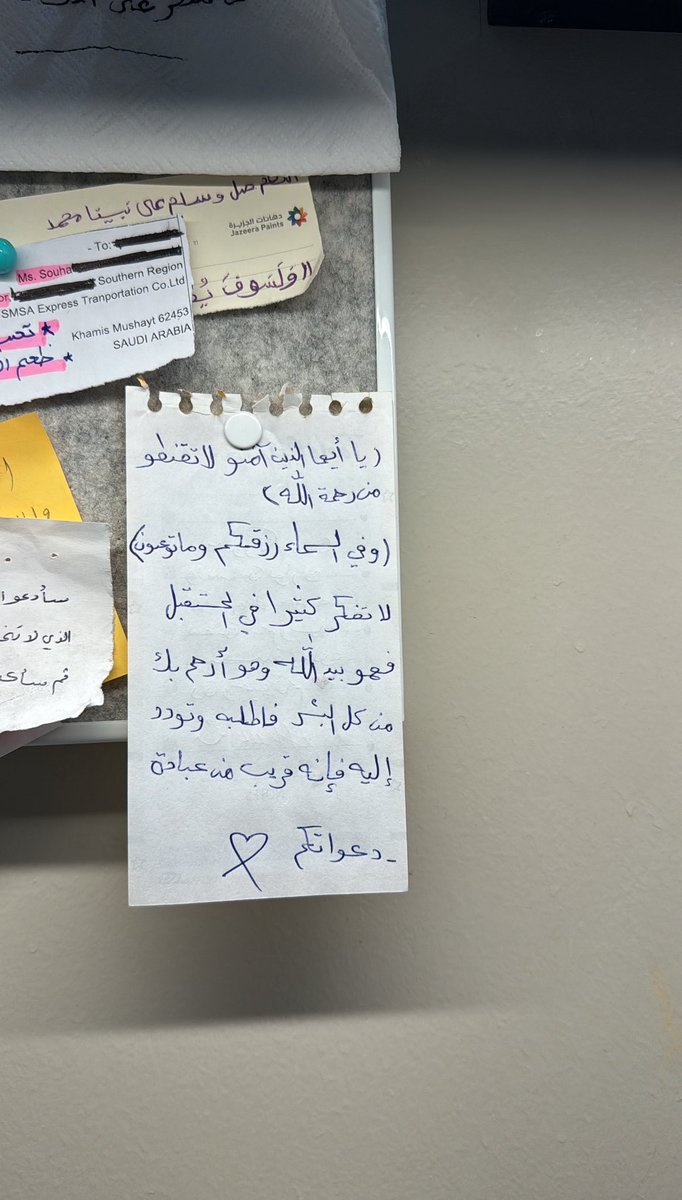 صل وسلم على نبينا محمد
دهانات الجزيرة
Jazeera Paints
"وَلَسَوفَ
- To:
Ms. Souha
Southern Region
SMSA Express Tranportation Co.Ltd
Khamis Mushayt 62453
SAUDI ARABIA
(يا أيها الذين آمنو لا تقنطو
من رحمة الله)
(وفي السماء رزقكم وماتوعدون)
لا تفكر كثيرا في المستقبل
فهو بيد الله وهو أرحم بك
من كل البشر فاطلبه وتودد
إليه فإنه قريب من عبادة
- دعواتكم
سأدعوا
الذي لا
ثم